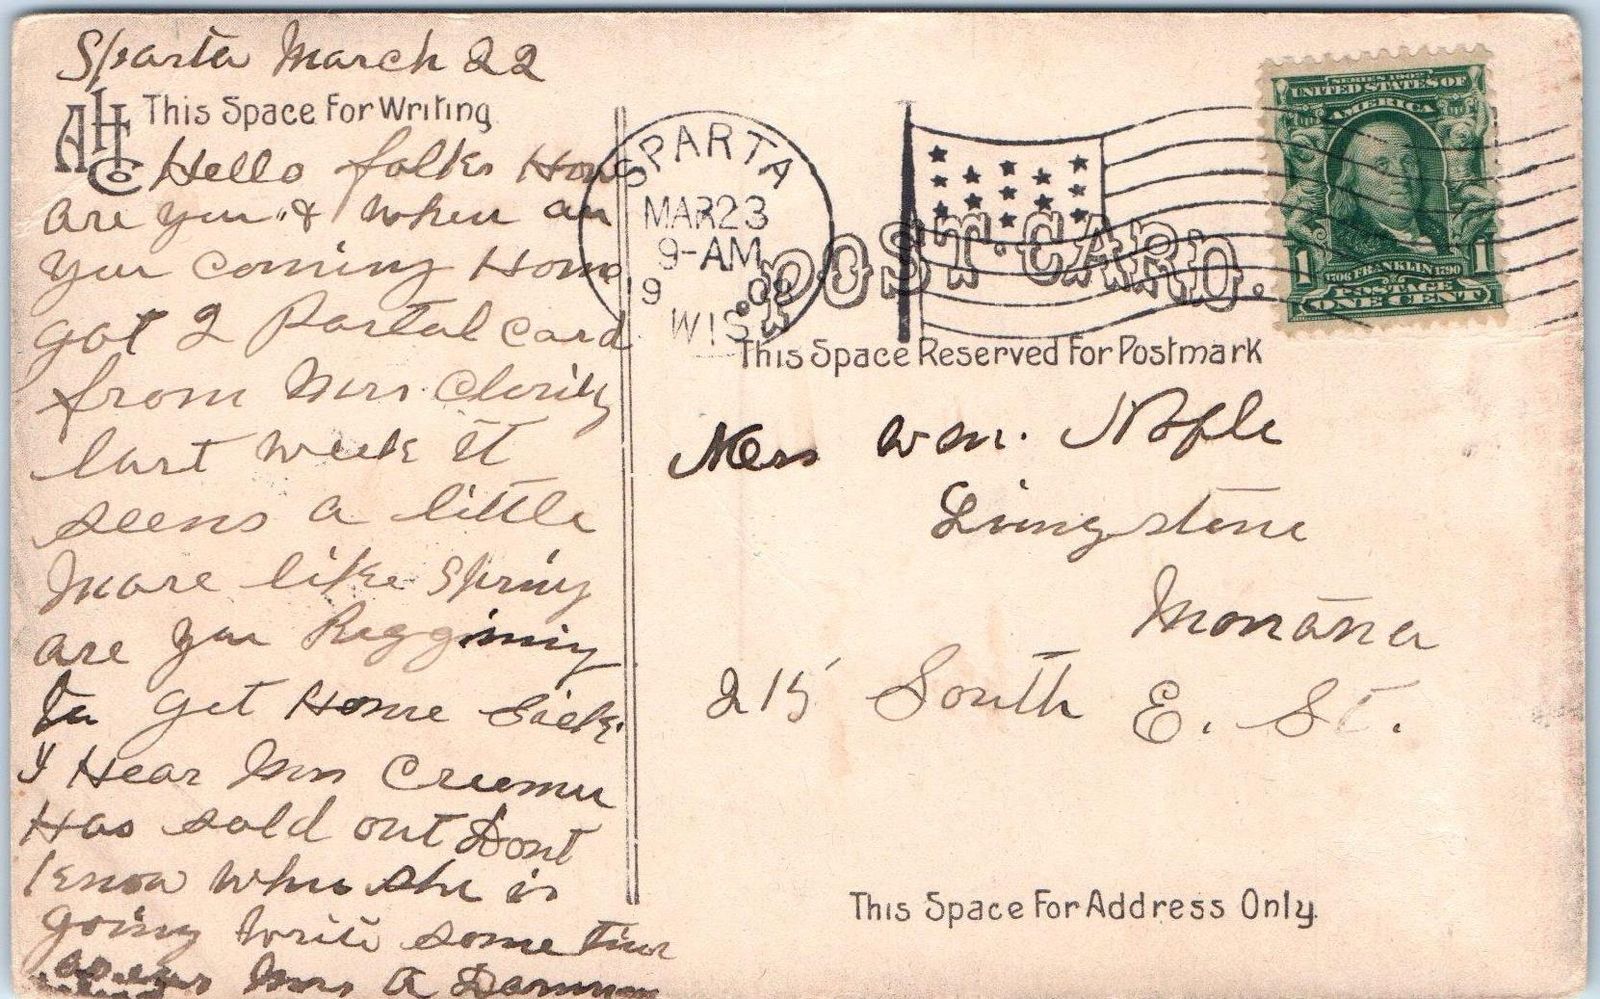 Sparta March 22
AHCo
This Space For Writing
Hello folks How
are you & when are
you coming Home
got 2 Postal Card
from Mrs.
last week it
seems a little
more like Spring
are you Beggining
to get Home Sick
I Hear Mrs
Has sold out Dont
know when she is
going write some time
as ever Mrs A
SPARTA
MAR 23
9-AM
19 08
WIS.
POST-CARD.
This Space Reserved For Postmark
SERIES 1902
UNITED STATES OF
AMERICA
1 1
1706 FRANKLIN 1790
POSTAGE
ONE CENT
Mrs Wm.
Livingstone
Montana
215 South E. St.
This Space For Address Only.